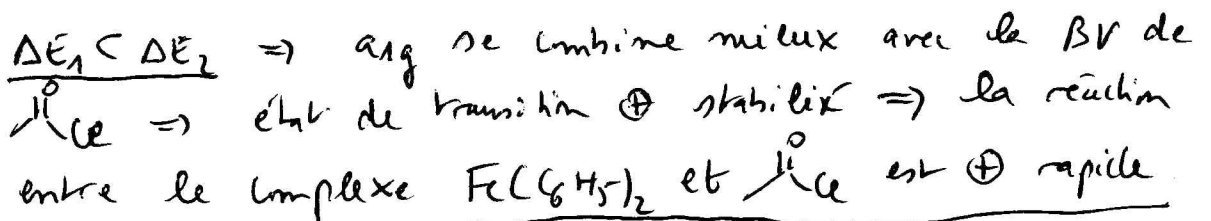 ΔE₁ < ΔE₂ ⇒ a₁g se combine mieux avec la BV de
O Cl ⇒ état de transition ⊕ stabilisé ⇒ la réaction
entre le complexe Fe(C₆H₅)₂ et O Cl est ⊕ rapide